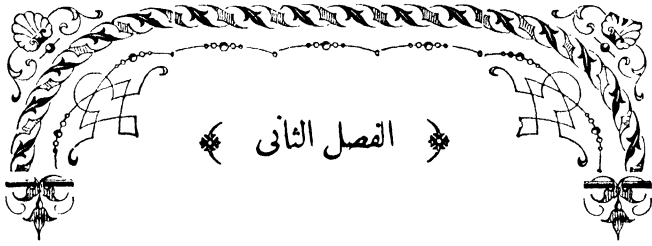 الفصل الثانى